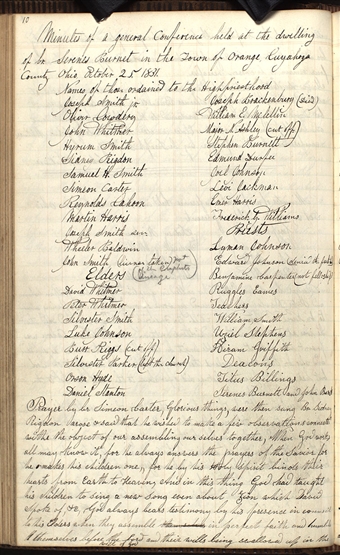 10
Minutes of a general Conference held at the dwelling
of br. Serenes Burnet in the Town of Orange Cuyahoga
County Ohio October 25th 1831.
Names of those ordained to the Highpriesthood
Joseph Smith jr.
Oliver Cowdery
John Whitmer
Hyrum Smith
Sidney Rigdon
Samuel H. Smith
Simeon Carter
Reynolds Cahoon
Martin Harris
Joseph Smith sen.
Wheeler Baldwin
John Smith
Elders
David Whitmer
Peter Whitmer
Silvester Smith
Luke Johnson
Burr Riggs (cut off)
Silvester Harker (left the church)
Orson Hyde
Daniel Stanton
Joseph Brackenbury (died)
William E. McLellin
Major N. Ashley (cut off)
Stephen Burnett
Edmund Durfee
Joel Johnson
Levi Jackman
Ezra Harris
Frederick G. Williams
Priests
Lyman Johnson
Edward Johnson
Benjamin Carpenter
Ruggles Eames
Teachers
William Smith
Uriel Stephens
Hiram Griffith
Deacons
Titus Billings
Serenes Burnett and John Burk
Prayer by br. Simeon Carter, Glorious things were then sung br. Sidney
Rigdon arose & said that he wished to make a few observations connected
with the object of our assembling our selves together, When God works
all may know it, for he always answers the prayers of the Savior for
he makes his children one, for he by his Holy Spirit binds their
hearts from Earth to heaven and in this thing God had taught
his children to sing a new song even about Zion which David
spoke of &c, God always bears testimony by his presence in council
to his Elders when they assemble in perfect faith and humble
themselves before the Lord and their wills being swallowed up in the
will of God